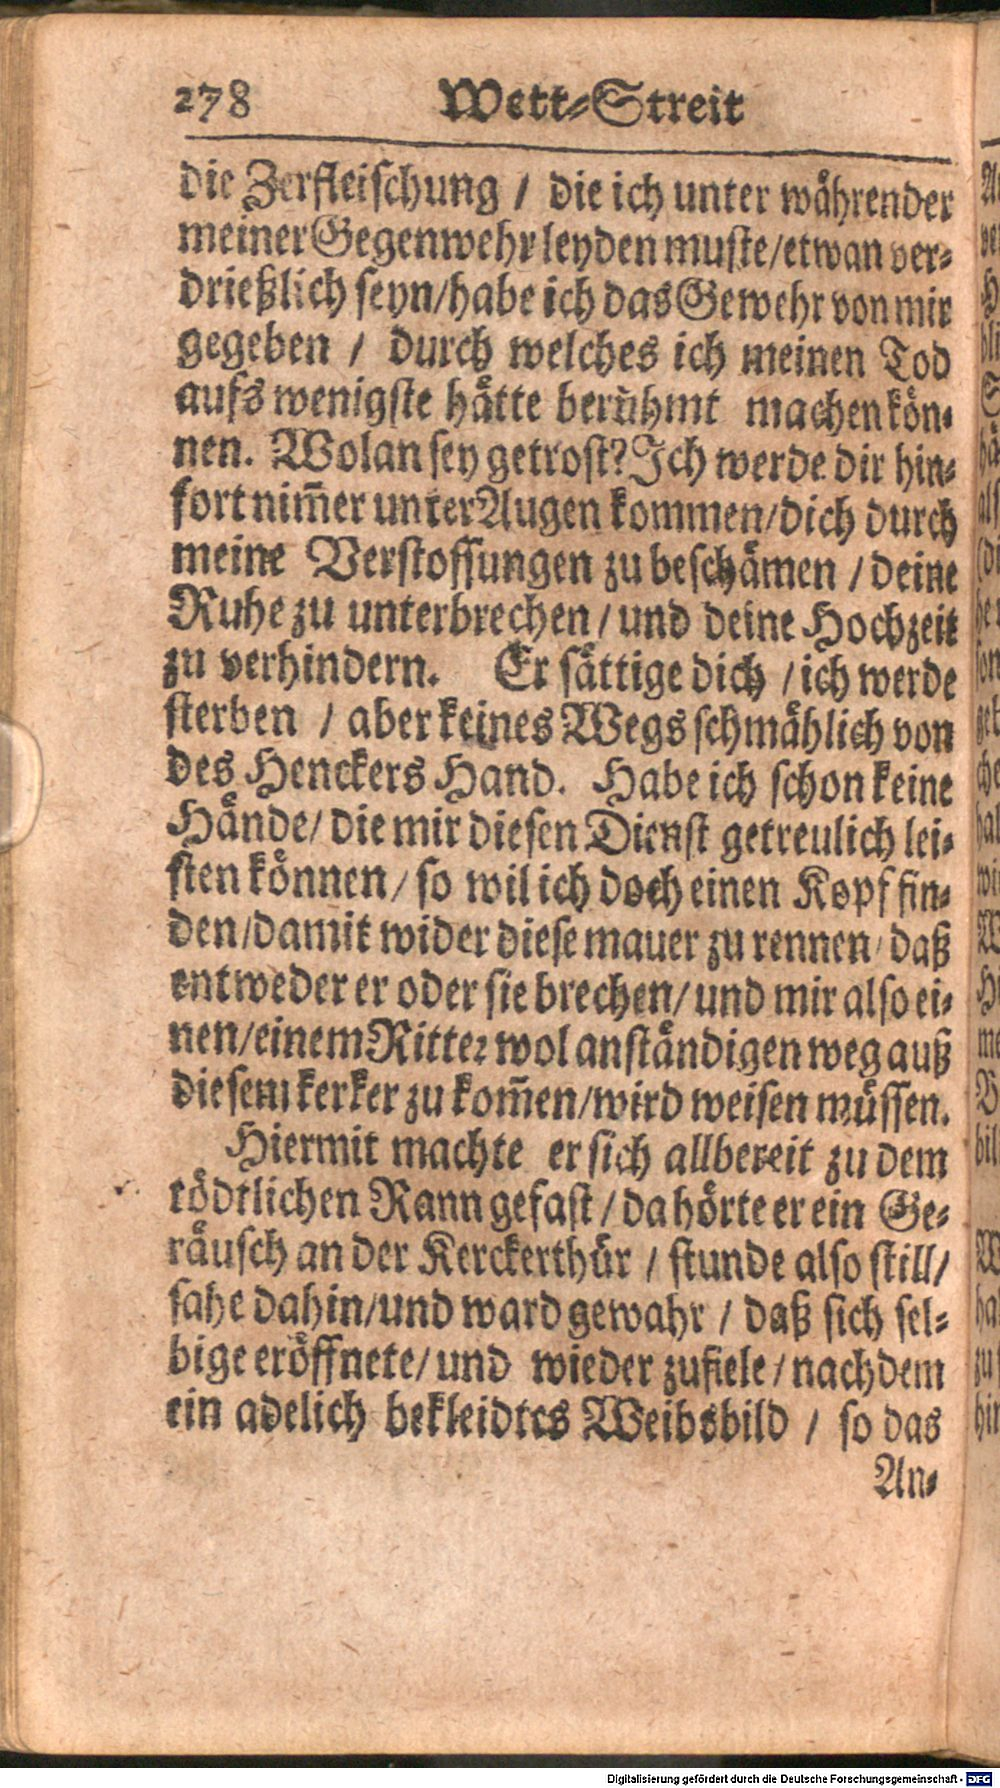 278 Wett-Streit
die Zerfleischung / die ich unter währender
meiner Gegenwehr leyden muste/etwan ver-
drießlich seyn/habe ich das Gewehr von mir
gegeben / durch welches ich meinen Tod
aufs wenigste hätte berühmt machen kön-
nen. Wolan sey getrost? Ich werde dir hin-
fort nim̄er unter Augen kommen/dich durch
meine Verstossungen zu beschämen / deine
Ruhe zu unterbrechen / und deine Hochzeit
zu verhindern. Er sättige dich / ich werde
sterben / aber keines Wegs schmählich von
des Henckers Hand. Habe ich schon keine
Hände/ die mir diesen Dienst getreulich lei-
sten können/ so wil ich doch einen Kopf fin-
den/damit wider diese mauer zu rennen/ daß
entweder er oder sie brechen/ und mir also ei-
nen/einem Ritter wol anständigen weg auß
diesem kerker zu kom̄en/wird weisen müssen.
Hiermit machte er sich allbereit zu dem
tödtlichen Rann gefast / da hörte er ein Ge-
räusch an der Kerckerthür / stunde also still/
sahe dahin/und ward gewahr / daß sich sel-
bige eröffnete/ und wieder zufiele / nachdem
ein adelich bekleidtes Weibsbild / so das
An-
Digitalisierung gefördert durch die Deutsche Forschungsgemeinschaft - DFG